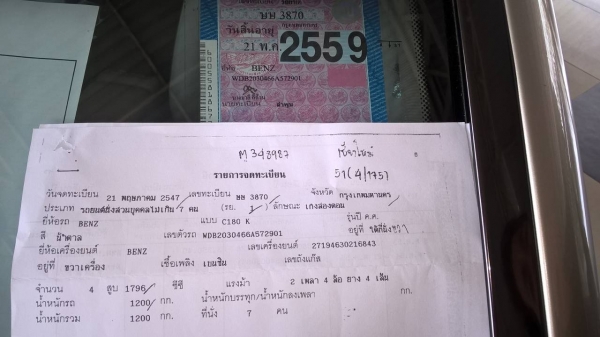 ษษ 3870
วันสิ้นอายุ
21 พ.ค. 2559
BENZ
WDB2030466A572901
M 348987
51(4/1751
รายการจดทะเบียน
วันจดทะเบียน 21 พฤษภาคม 2547 เลขทะเบียน ษษ 3870 จังหวัด กรุงเทพมหานคร
ประเภท รถยนต์นั่งส่วนบุคคลไม่เกิน 7 คน (รย. 1) ลักษณะ เก๋งสองตอน
ยี่ห้อรถ BENZ แบบ C180 K รุ่นปี ค.ศ.
สี น้ำตาล เลขตัวรถ WDB2030466A572901 อยู่ที่
ยี่ห้อเครื่องยนต์ BENZ เลขเครื่องยนต์ 27194630216843
อยู่ที่ ขวาเครื่อง เชื้อเพลิง เบนซิน เลขถังแก๊ส
จำนวน 4 สูบ 1796 ซีซี แรงม้า 2 เพลา 4 ล้อ ยาง 4 เส้น
น้ำหนักรถ 1200 กก. น้ำหนักบรรทุก/น้ำหนักลงเพลา กก.
น้ำหนักรวม 1200 กก. ที่นั่ง 7 คน